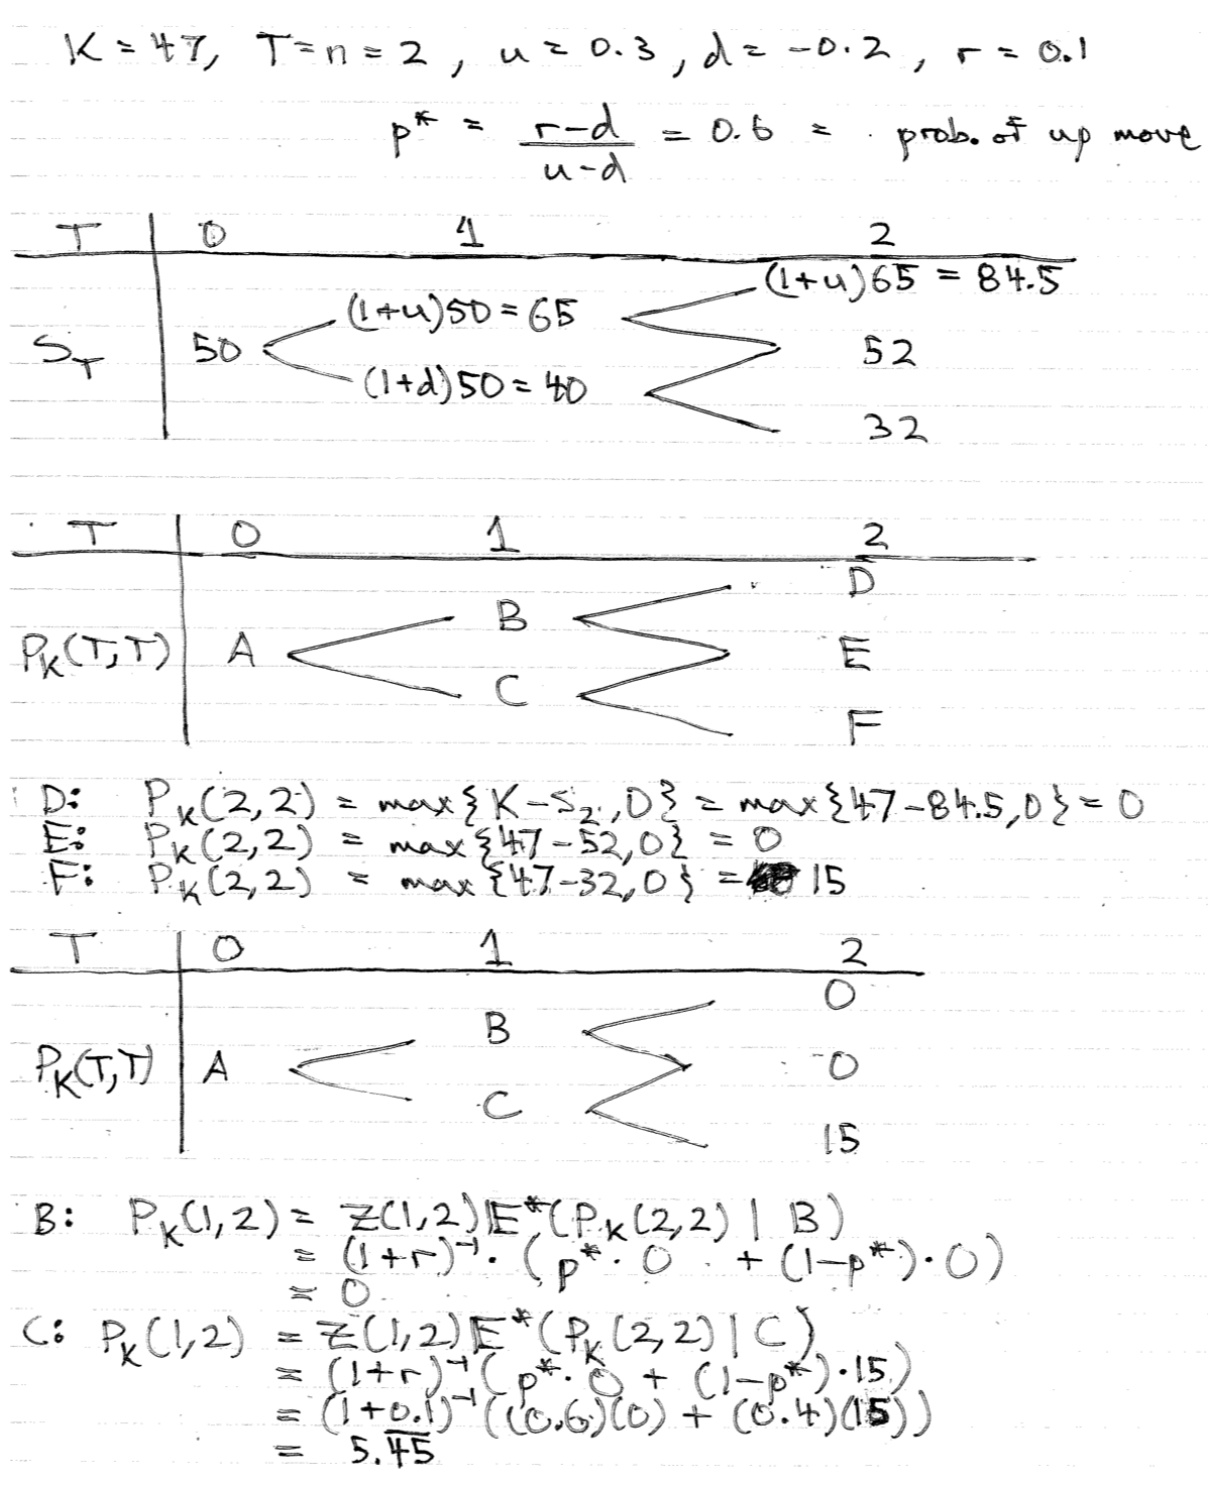 K = 47, T = n = 2, u = 0.3, d = -0.2, r = 0.1
p* = (r-d)/(u-d) = 0.6 = prob. of up move
T 0 1 2
(1+u)65 = 84.5
(1+u)50 = 65
S_T 50 52
(1+d)50 = 40
32
T 0 1 2
D
B
P_K(T,T) A E
C
F
D: P_K(2,2) = max{K-S_2,0} = max{47-84.5,0} = 0
E: P_K(2,2) = max{47-52,0} = 0
F: P_K(2,2) = max{47-32,0} = 15
T 0 1 2
0
B
P_K(T,T) A 0
C
15
B: P_K(1,2) = Z(1,2)E*(P_K(2,2) | B)
= (1+r)^-1 · (p* · 0 + (1-p*) · 0)
= 0
C: P_K(1,2) = Z(1,2)E*(P_K(2,2) | C)
= (1+r)^-1 (p* · 0 + (1-p*) · 15)
= (1+0.1)^-1 ((0.6)(0) + (0.4)(15))
= 5.4̅5̅